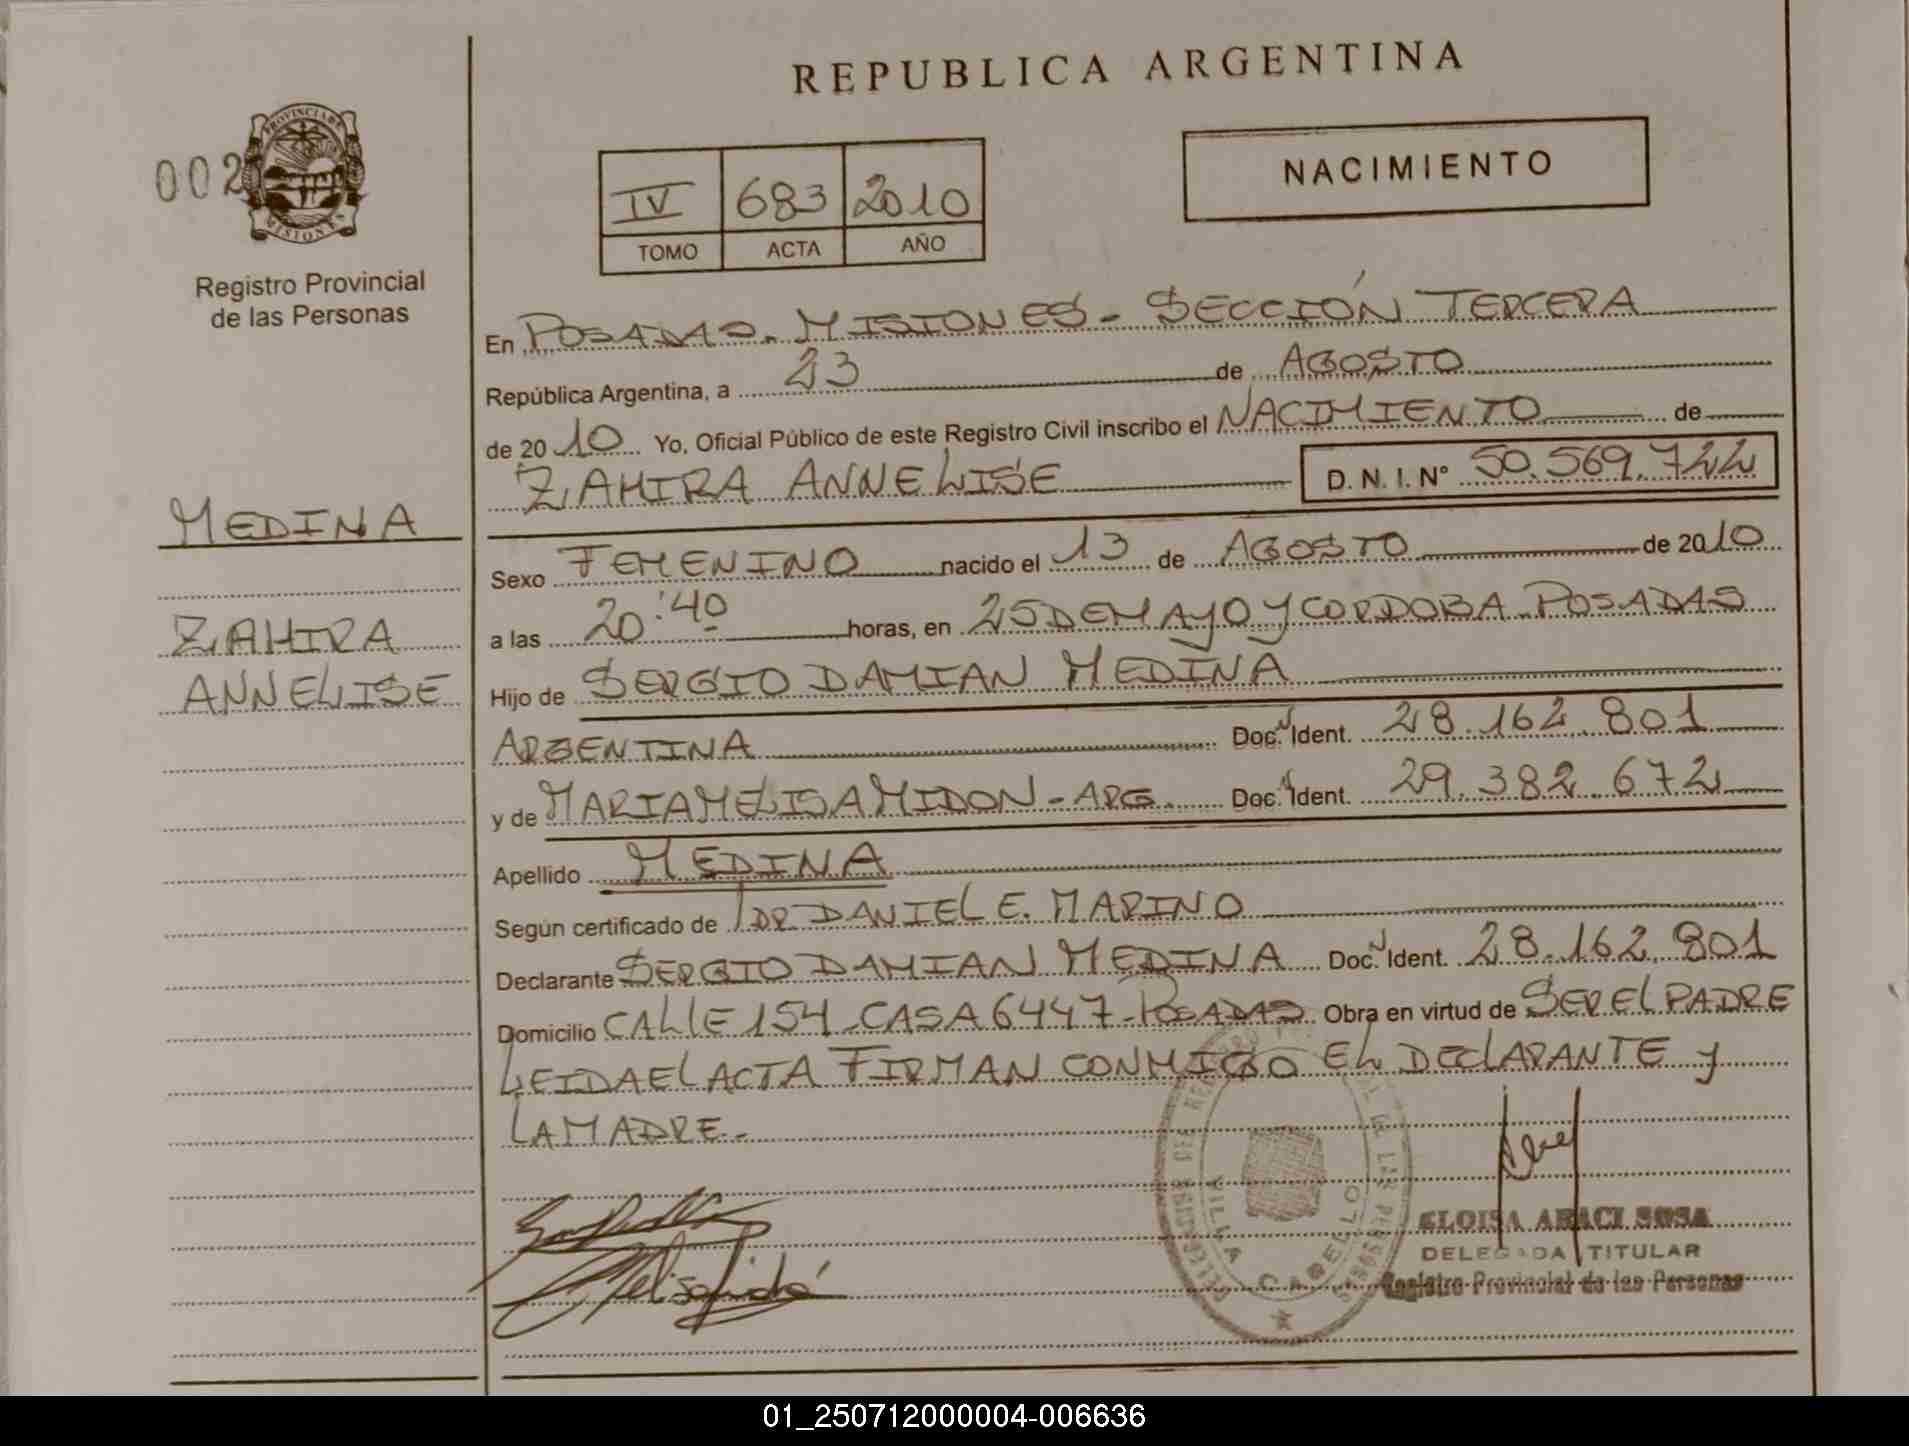 REPUBLICA ARGENTINA
002
PROVINCIA DE
MISIONES
Registro Provincial
de las Personas
IV 683 2010
TOMO ACTA AÑO
NACIMIENTO
En POSADAS. MISIONES - SECCIÓN TERCERA
República Argentina, a 23 de AGOSTO
de 2010 Yo, Oficial Público de este Registro Civil inscribo el NACIMIENTO de
ZAHIRA ANNELISE D. N. I. N° 50.569.722
MEDINA
Sexo FEMENINO nacido el 13 de AGOSTO de 2010
ZAHIRA
a las 20:40 horas, en 25 DE MAYO y CORDOBA - POSADAS
ANNELISE
Hijo de SERGIO DAMIAN MEDINA
ARGENTINA Doc. N Ident. 28.162.801
y de MARIA MELISA MIDON - ARG. Doc. N Ident. 29.382.672
Apellido MEDINA
Según certificado de DR. DANIEL E. MARINO
Declarante SERGIO DAMIAN MEDINA Doc. N Ident. 28.162.801
Domicilio CALLE 154 - CASA 6447 - POSADAS Obra en virtud de SER EL PADRE
LEIDA EL ACTA FIRMAN CONMIGO EL DECLARANTE y
LA MADRE.-
VILLA CABELLO
ELOISA ARACI SOSA
DELEGADA TITULAR
Registro Provincial de las Personas
01_250712000004-006636